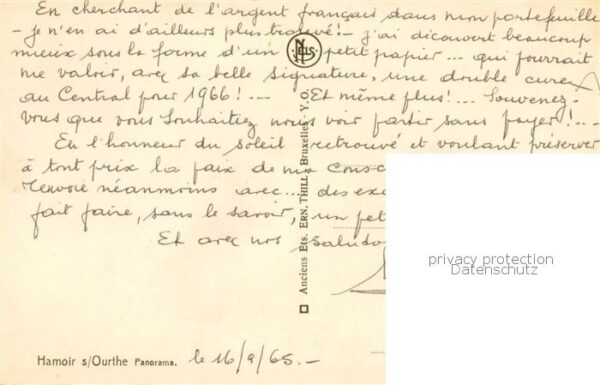 En cherchant de l'argent français dans mon portefeuille
- je n'en ai d'ailleurs plus trouvé! - j'ai dicouvert beaucoup
mieux sous la forme d'un petit papier... qui pourrait
me valoir, avec sa belle signature, une double cure
au Central pour 1966! --- Et même plus!... Souvenez-
vous que vous souhaitiez nous voir partir sans payer!...
En l'honneur du soleil retrouvé et voulant préserver
à tout prix la paix de ma consc
renvoie néanmoins avec... des exc
fait faire, sans le savoir, un pet
Et avec nos
NELS
Anciens Ets. ERN. THILL, Bruxelles. V. O.
privacy protection
Datenschutz
Hamoir s/Ourthe Panorama.
le 16/9/65.-